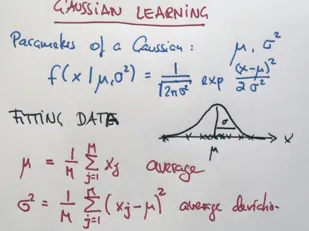 GAUSSIAN LEARNING
Parameters of a Gaussian: μ, σ²
f(x|μ,σ²) = 1/√2πσ² exp (x-μ)²/2σ²
FITTING DATA
σ
μ
x
μ = 1/M M∑j=1 xj average
σ² = 1/M M∑j=1 (xj-μ)² average deviation